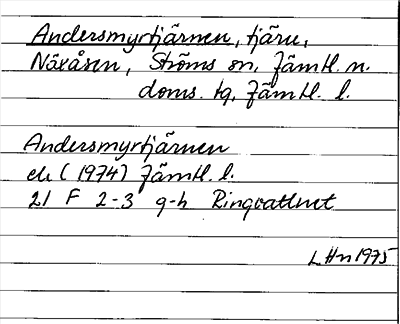 Andersmyrtjärnen, tjärn,
Näxåsen, Ströms sn, Jämtl. n.
doms. tg, Jämtl. l.
Andersmyrtjärnen
ek (1974) Jämtl. l.
21 F 2-3 g-h Ringvattnet
LHn 1975